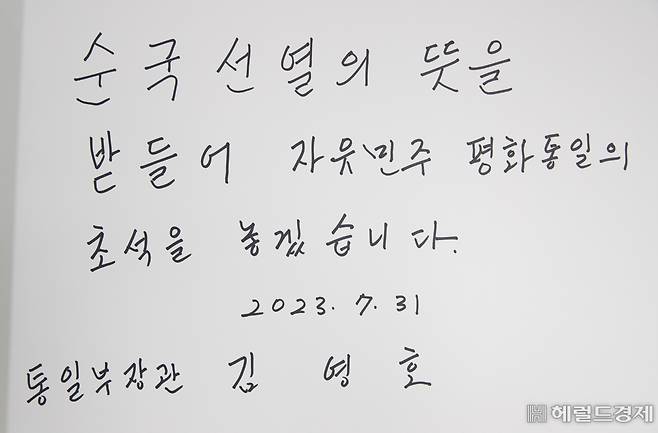 순국선열의 뜻을
받들어 자유민주 평화통일의
초석을 놓겠습니다.
2023. 7. 31
통일부장관 김영호
헤럴드경제